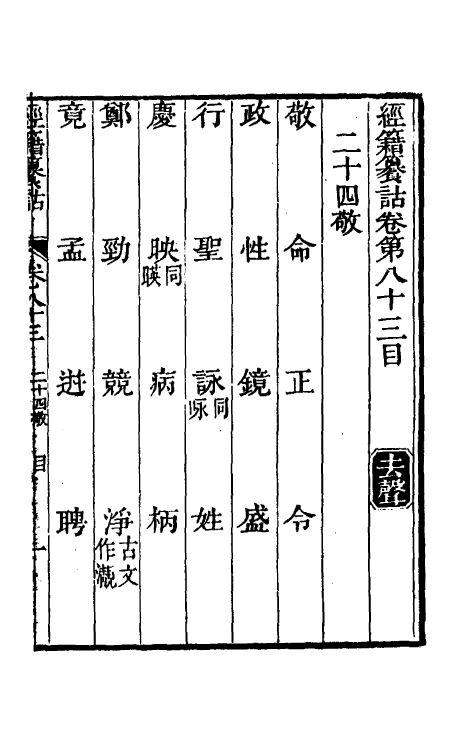 經籍籑詁卷第八十三目 去聲
二十四敬
敬 命 正 令
政 性 鏡 盛
行 聖 詠同咏 姓
慶 映同暎 病 柄
鄭 勁 競 淨古文作瀞
竟 孟 迸 聘
經籍籑詁 卷八十三 二十四敬 目 一